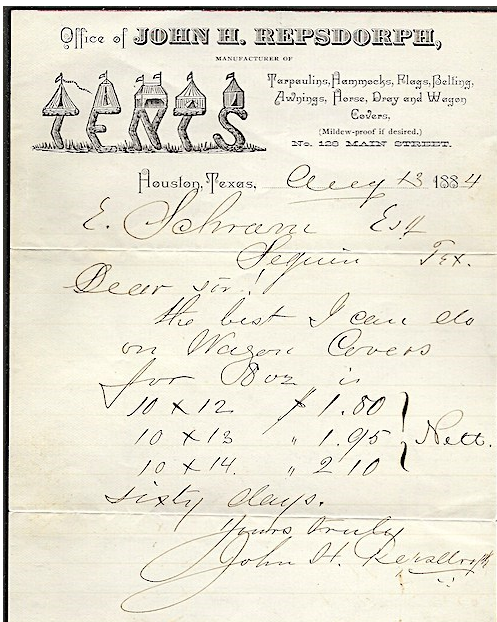 Office of JOHN H. REPSDORPH,
MANUFACTURER OF
TENTS
Tarpaulins, Hammocks, Flags, Belting,
Awnings, Horse, Dray and Wagon
Covers,
(Mildew-proof if desired.)
No. 120 MAIN STREET.
Houston, Texas, Aug 13 1884
E. Schram Esq
Seguin Tex.
Dear sir!
the best I can do
on Wagon Covers
for 8 oz is
10 x 12 $ 1.80
10 x 13 " 1.95 Nett.
10 x 14. " 2 10
sixty days.
Yours truly
John H. Repsdorph